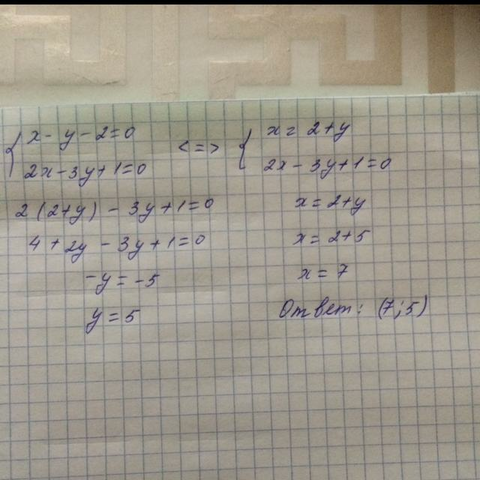 { x - y - 2 = 0
2x - 3y + 1 = 0
<=>
{ x = 2 + y
2x - 3y + 1 = 0
2 (2 + y) - 3y + 1 = 0
4 + 2y - 3y + 1 = 0
-y = -5
y = 5
x = 2 + y
x = 2 + 5
x = 7
Ответ: (7; 5)